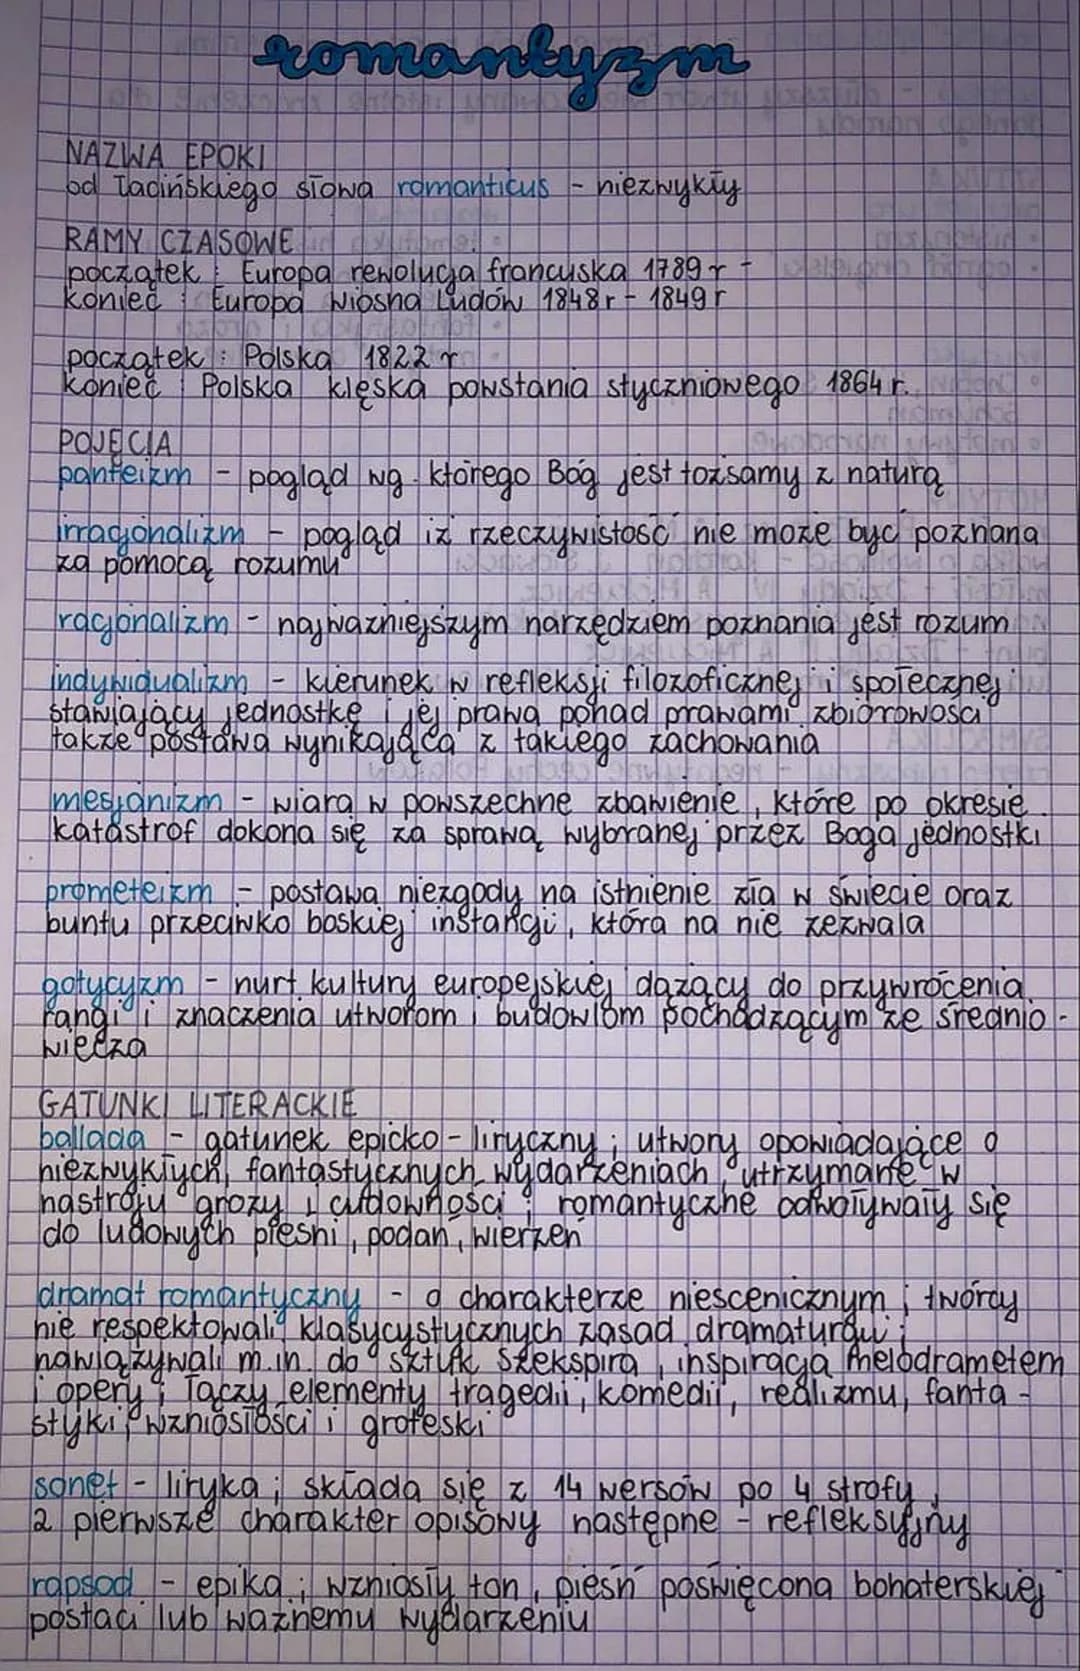 romantyzm
NAZWA EPOKI
od łacińskiego słowa romanticus - niezwykły
RAMY CZASOWE
początek : Europa rewolucja francuska 1789 r -
koniec : Europa Wiosna Ludów 1848r - 1849 r
początek : Polska 1822 r.
koniec : Polska klęska powstania styczniowego 1864 r.
POJĘCIA
panteizm - pogląd wg. którego Bóg jest tożsamy z naturą
irracjonalizm - pogląd iż rzeczywistość nie może być poznana
za pomocą rozumu
racjonalizm - najważniejszym narzędziem poznania jest rozum
indywidualizm - kierunek w refleksji filozoficznej i społecznej
stawiający jednostkę i jej prawa ponad prawami zbiorowości
także postawa wynikająca z takiego zachowania
mesjanizm - wiara w powszechne zbawienie, które po okresie
katastrof dokona się za sprawą wybranej przez Boga jednostki
prometeizm - postawa niezgody na istnienie zła w świecie oraz
buntu przeciwko boskiej instancji, która na nie zezwala
gotycyzm - nurt kultury europejskiej dążący do przywrócenia
rangi i znaczenia utworom i budowlom pochodzącym ze średnio-
wiecza
GATUNKI LITERACKIE
ballada - gatunek epicko-liryczny ; utwory opowiadające o
niezwykłych, fantastycznych wydarzeniach, utrzymane w
nastroju grozy i cudowności ; romantyczne odwoływały się
do ludowych pieśni, podań, wierzeń
dramat romantyczny - o charakterze niescenicznym ; twórcy
nie respektowali klasycystycznych zasad dramaturgii ;
nawiązywali m.in. do sztuk Szekspira, inspiracja melodrametem
i opery ; łączy elementy tragedii, komedii, realizmu, fanta-
styki, wzniosłości i groteski
sonet - liryka ; składa się z 14 wersów po 4 strofy,
2 pierwsze charakter opisowy następne - refleksyjny
rapsod - epika ; wzniosły ton, pieśń poświęcona bohaterskiej
postaci lub ważnemu wydarzeniu